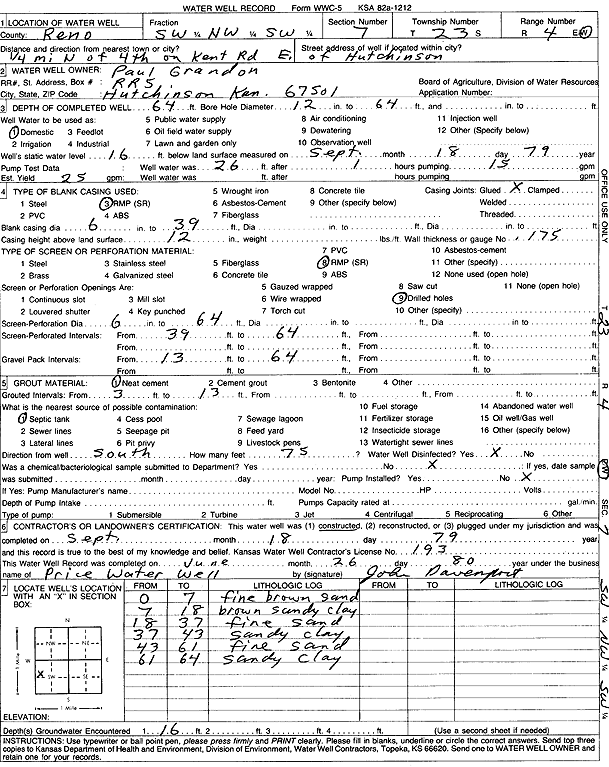 WATER WELL RECORD Form WWC-5 KSA 82a-1212
1 LOCATION OF WATER WELL Fraction Section Number Township Number Range Number
County: Reno SW ¼ NW ¼ SW ¼ 7 T 23 S R 4 E/W
Distance and direction from nearest town or city? Street address of well if located within city?
1/4 mi N of 4th on Kent Rd E. of Hutchinson
2 WATER WELL OWNER: Paul Grandon
RR#, St. Address, Box # : RR5 Board of Agriculture, Division of Water Resources
City, State, ZIP Code : Hutchinson Ken. 67501 Application Number:
3 DEPTH OF COMPLETED WELL 64 ft. Bore Hole Diameter 12 in. to 64 ft., and in. to ft.
Well Water to be used as: 5 Public water supply 8 Air conditioning 11 Injection well
1 Domestic 3 Feedlot 6 Oil field water supply 9 Dewatering 12 Other (Specify below)
2 Irrigation 4 Industrial 7 Lawn and garden only 10 Observation well
Well's static water level 16 ft. below land surface measured on Sept month 18 day 79 year
Pump Test Data : Well water was 26 ft. after 1 hours pumping 15 gpm
Est. Yield 25 gpm: Well water was ft. after hours pumping gpm
4 TYPE OF BLANK CASING USED: 5 Wrought iron 8 Concrete tile Casing Joints: Glued X Clamped
1 Steel 3 RMP (SR) 6 Asbestos-Cement 9 Other (specify below) Welded
2 PVC 4 ABS 7 Fiberglass Threaded
Blank casing dia 6 in. to 39 ft., Dia in. to ft., Dia in. to ft.
Casing height above land surface 12 in., weight lbs./ft. Wall thickness or gauge No .175
TYPE OF SCREEN OR PERFORATION MATERIAL: 7 PVC 10 Asbestos-cement
1 Steel 3 Stainless steel 5 Fiberglass 8 RMP (SR) 11 Other (specify)
2 Brass 4 Galvanized steel 6 Concrete tile 9 ABS 12 None used (open hole)
Screen or Perforation Openings Are: 5 Gauzed wrapped 8 Saw cut 11 None (open hole)
1 Continuous slot 3 Mill slot 6 Wire wrapped 9 Drilled holes
2 Louvered shutter 4 Key punched 7 Torch cut 10 Other (specify)
Screen-Perforation Dia 6 in. to 64 ft., Dia in. to ft., Dia in. to ft.
Screen-Perforated Intervals: From 39 ft. to 64 ft., From ft. to ft.
From ft. to ft., From ft. to ft.
Gravel Pack Intervals: From 13 ft. to 64 ft., From ft. to ft.
From ft. to ft., From ft. to ft.
5 GROUT MATERIAL: 1 Neat cement 2 Cement grout 3 Bentonite 4 Other
Grouted Intervals: From 3 ft. to 13 ft., From ft. to ft., From ft. to ft.
What is the nearest source of possible contamination: 10 Fuel storage 14 Abandoned water well
1 Septic tank 4 Cess pool 7 Sewage lagoon 11 Fertilizer storage 15 Oil well/Gas well
2 Sewer lines 5 Seepage pit 8 Feed yard 12 Insecticide storage 16 Other (specify below)
3 Lateral lines 6 Pit privy 9 Livestock pens 13 Watertight sewer lines
Direction from well South How many feet 75 ? Water Well Disinfected? Yes X No
Was a chemical/bacteriological sample submitted to Department? Yes No X If yes, date sample
was submitted month day year: Pump Installed? Yes No X
If Yes: Pump Manufacturer's name Model No. HP Volts
Depth of Pump Intake ft. Pumps Capacity rated at gal./min.
Type of pump: 1 Submersible 2 Turbine 3 Jet 4 Centrifugal 5 Reciprocating 6 Other
6 CONTRACTOR'S OR LANDOWNER'S CERTIFICATION: This water well was (1) constructed, (2) reconstructed, or (3) plugged under my jurisdiction and was
completed on Sept month 18 day 79 year
and this record is true to the best of my knowledge and belief. Kansas Water Well Contractor's License No. 193
This Water Well Record was completed on June month 26 day 80 year under the business
name of Price Water Well by (signature) John Davenport
7 LOCATE WELL'S LOCATION WITH AN "X" IN SECTION BOX:
FROM TO LITHOLOGIC LOG FROM TO LITHOLOGIC LOG
0 7 fine brown sand
7 18 brown sandy clay
18 37 fine sand
37 43 sandy clay
43 61 fine sand
61 64 sandy clay
N
NW NE
W E
X SW SE
S
1 Mile
1 Mile
ELEVATION:
Depth(s) Groundwater Encountered 1 16 ft. 2 ft. 3 ft. 4 ft. (Use a second sheet if needed)
INSTRUCTIONS: Use typewriter or ball point pen, please press firmly and PRINT clearly. Please fill in blanks, underline or circle the correct answers. Send top three
copies to Kansas Department of Health and Environment, Division of Environment, Water Well Contractors, Topeka, KS 66620. Send one to WATER WELL OWNER and
retain one for your records.
OFFICE USE ONLY
T 23
R 4
E/W
SEC 7
SW ¼ NW ¼ SW ¼